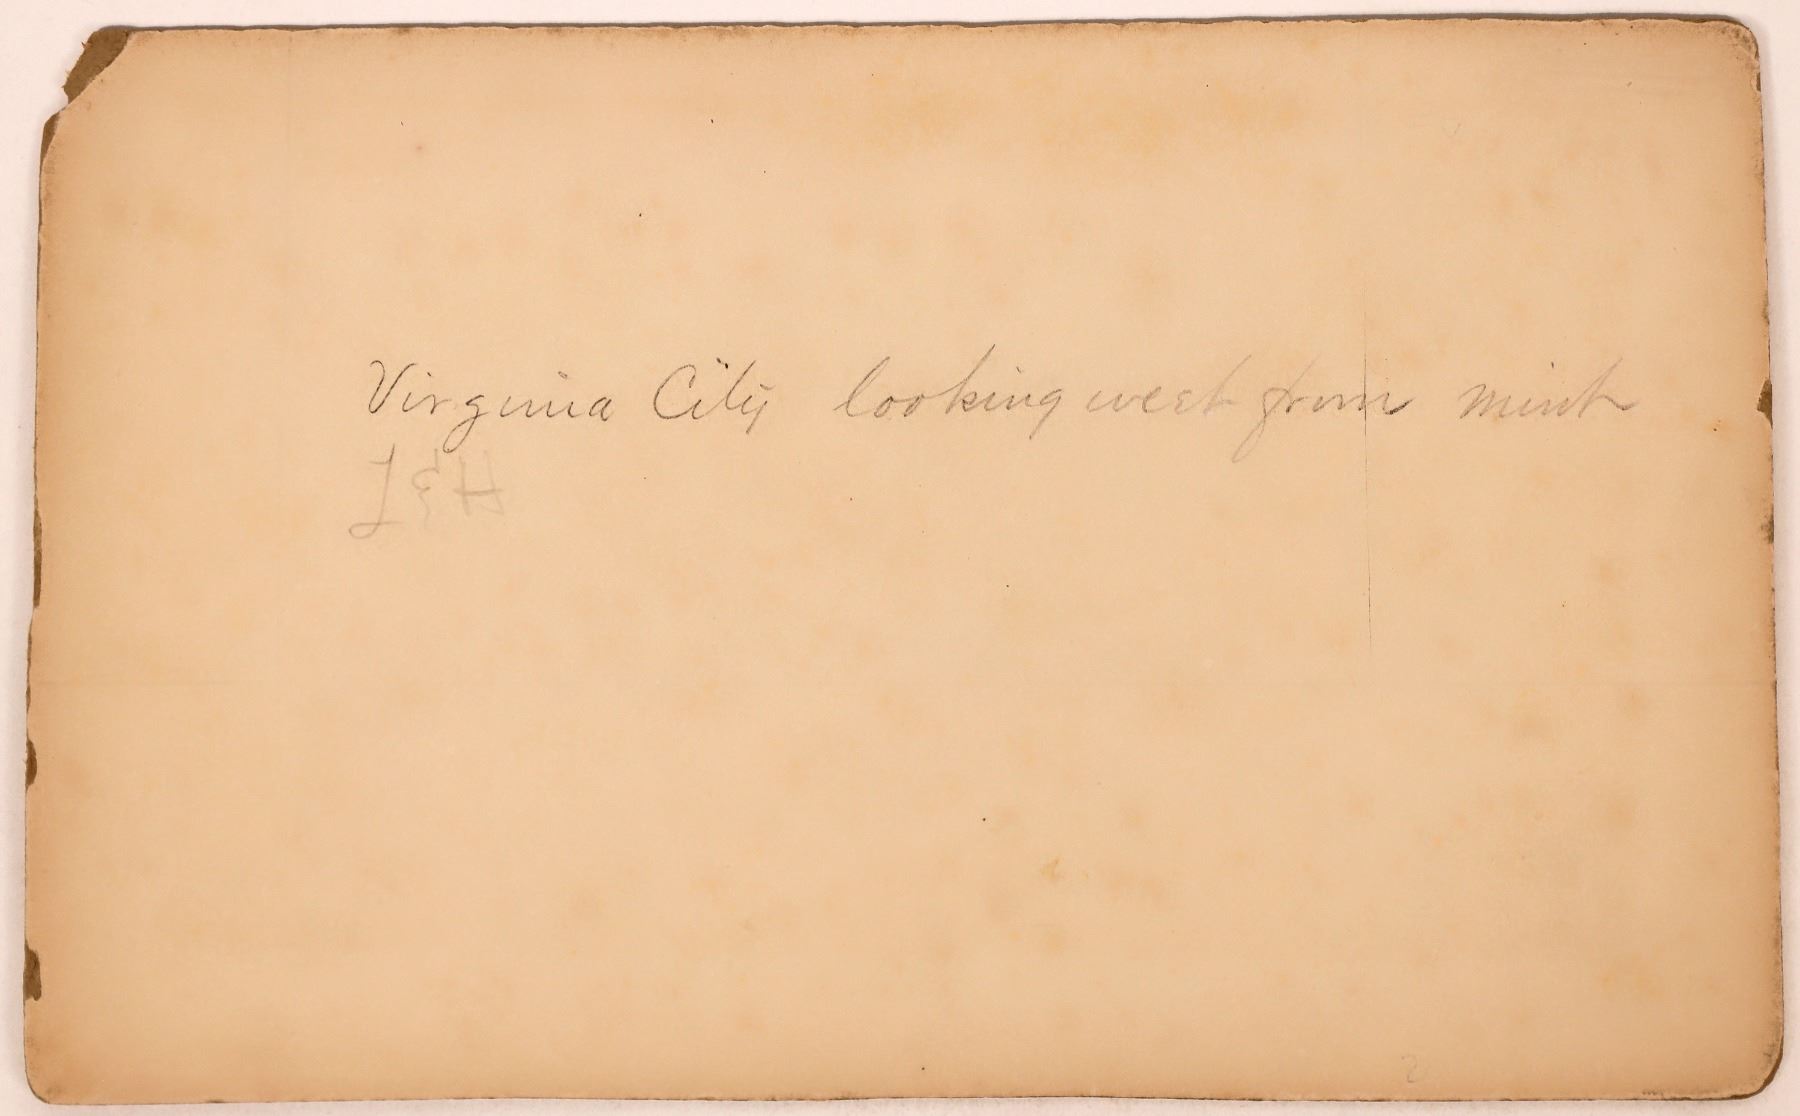 Virginia City looking west from mint
L & H